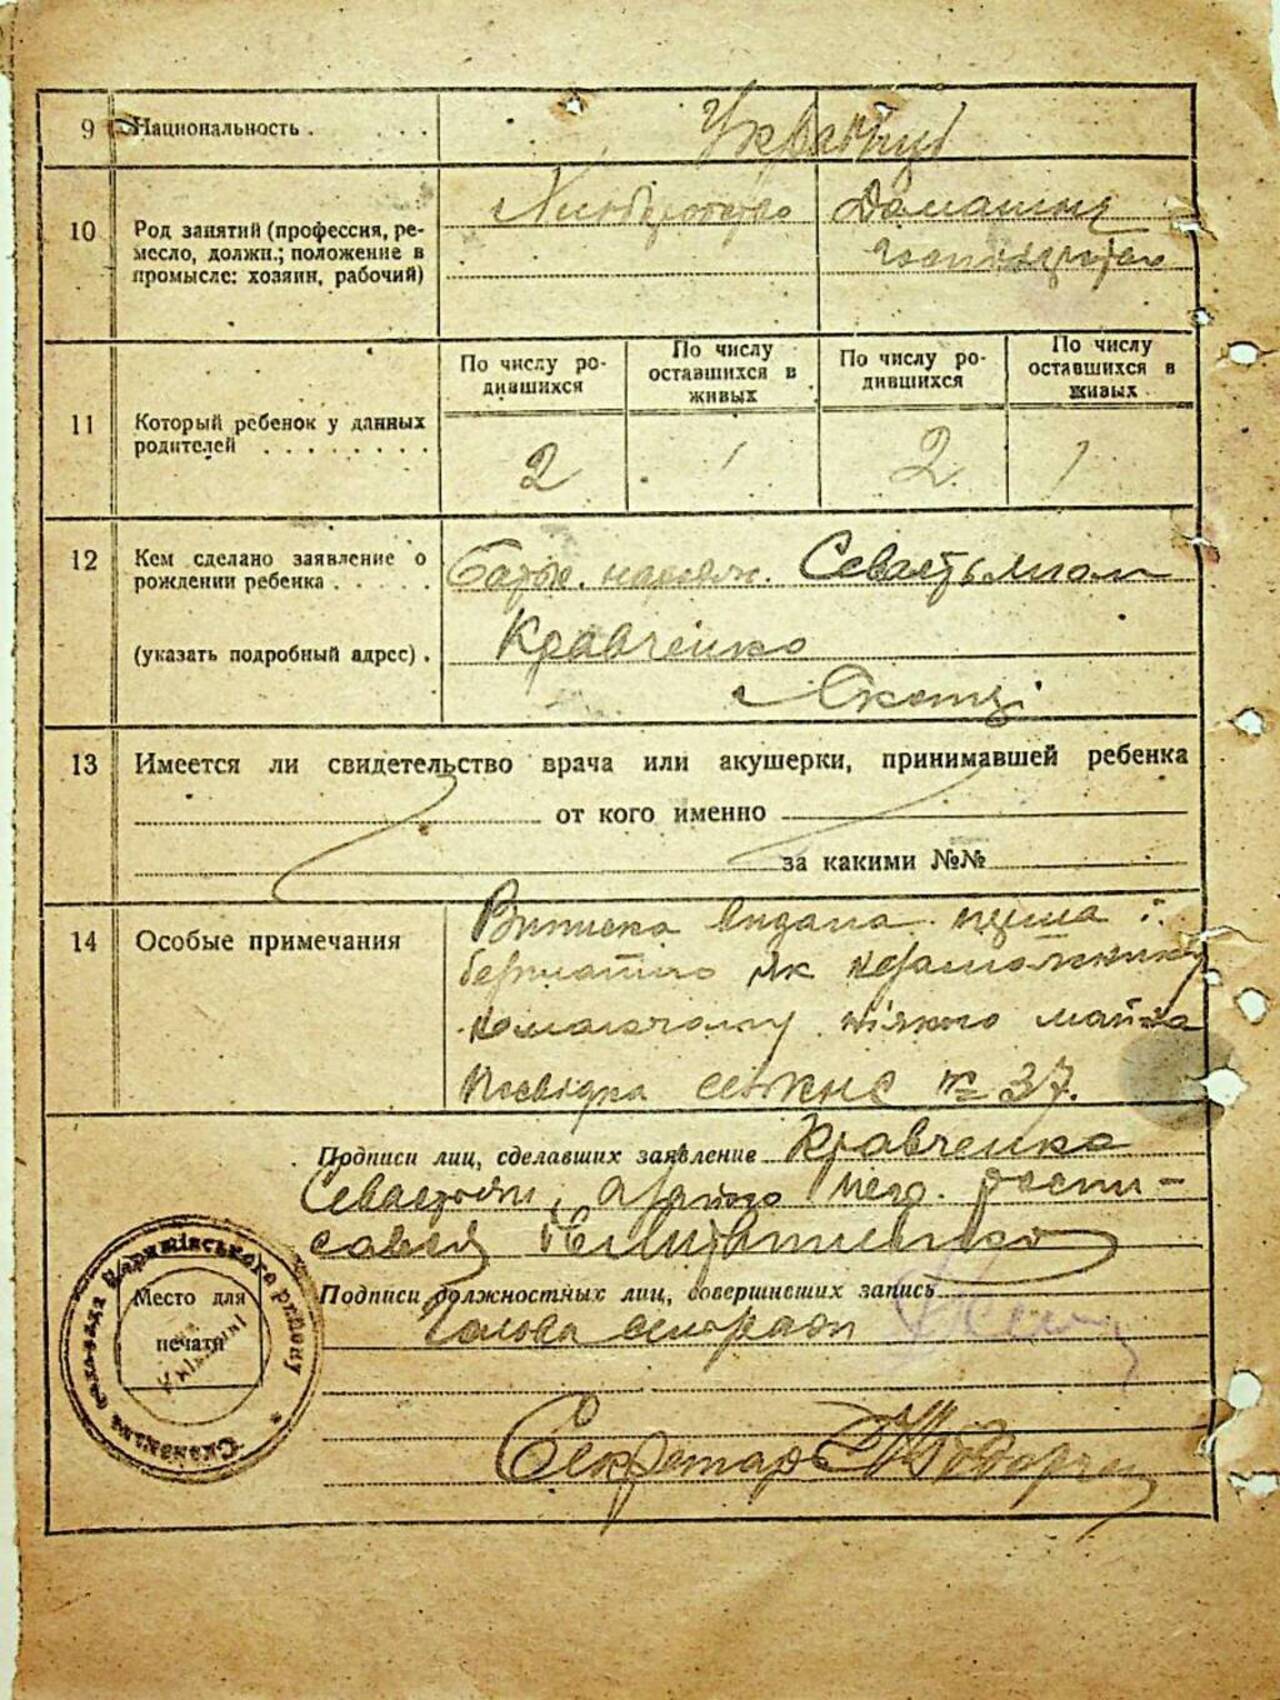 9 Национальность . . . .
Українці
10 Род занятий (профессия, ре-
месло, должн.; положение в
промысле: хозяин, рабочий)
Хліборобство
Домашнє
господарство
11 Который ребенок у данных
родителей . . . . . . . .
По числу ро-
дившихся
По числу
оставшихся в
живых
По числу ро-
дившихся
По числу
оставшихся в
живых
2 1 2 1
12 Кем сделано заявление о
рождении ребенка . . . . .
(указать подробный адрес) .
Севастьяном
Кравченко
13 Имеется ли свидетельство врача или акушерки, принимавшей ребенка
от кого именно
за какими №№
14 Особые примечания
Виписка видана перша і
безплатно як незаможнику
немаючому ніякого майна
Посвідка № 37.
Подписи лиц, сделавших заявление Кравченко
Севастьян, а роспи-
сався
Подписи должностных лиц, совершивших запись
Голова сельради
Секретар
Место для
печати
району